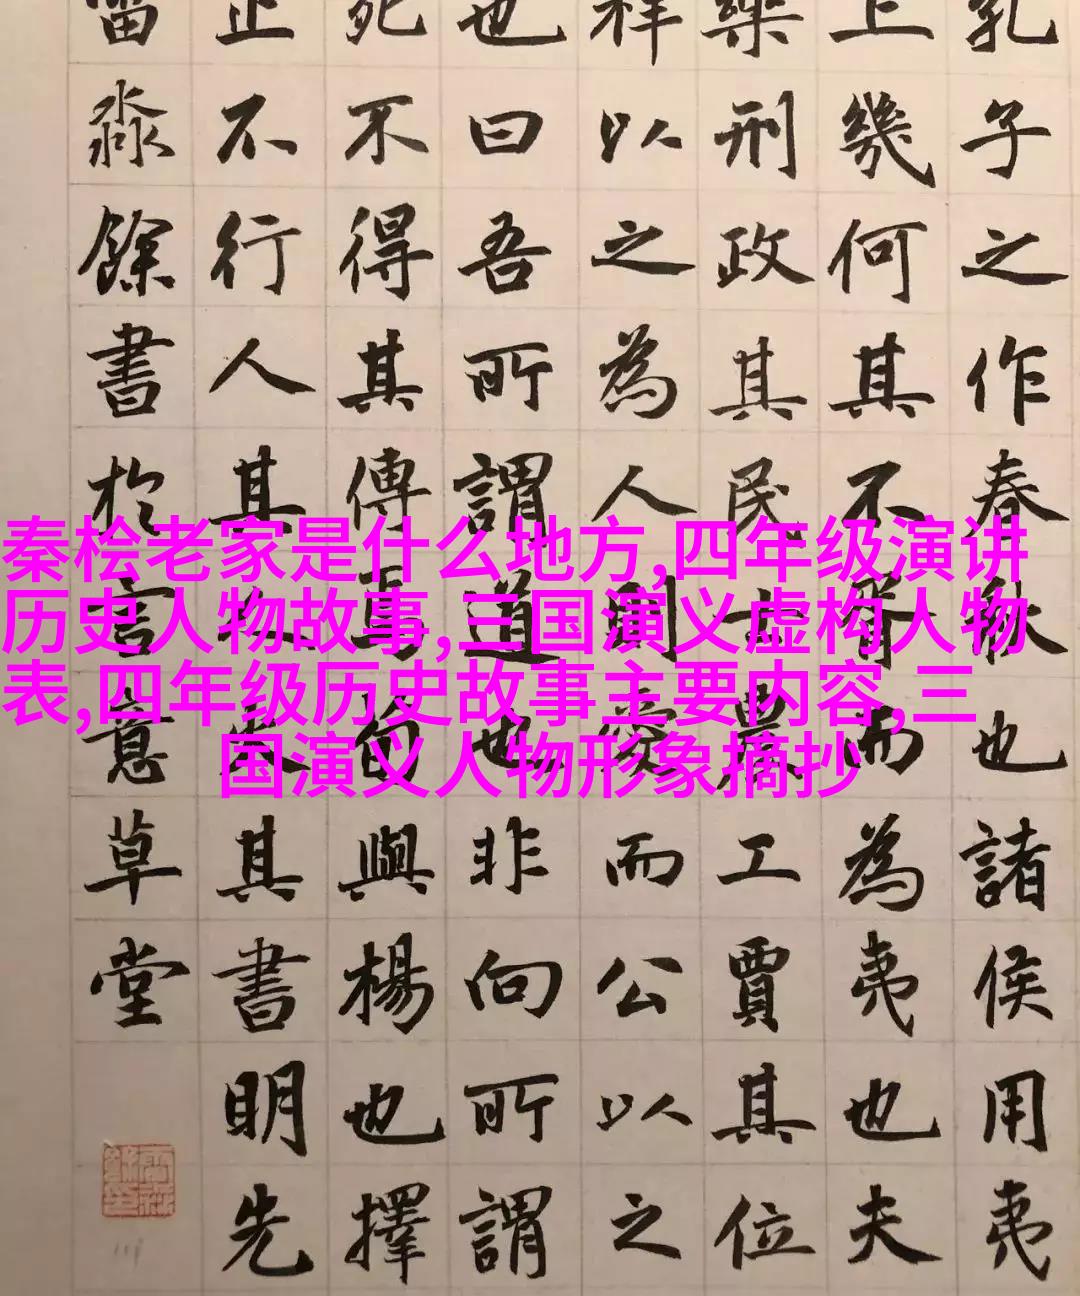 孔子之作春秋也諸侯用夷
上幾何其不胥而為夷也夫
樂刑政其民士農工賈其位
祥以之為人則愛而公以之
也曰吾所謂道也非向所謂
死不得其傳焉荀與楊也擇
止不行人其人火其書明先
淼餘書於言意草堂
秦桧老家是什么地方,四年级演讲
历史人物故事,三国演义虚构人物
表,四年级历史故事主要内容,三
国演义人物形象摘抄